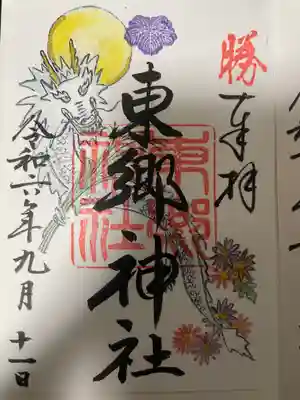 勝
奉拝
東郷神社
東郷
神社
令和六年九月十一日